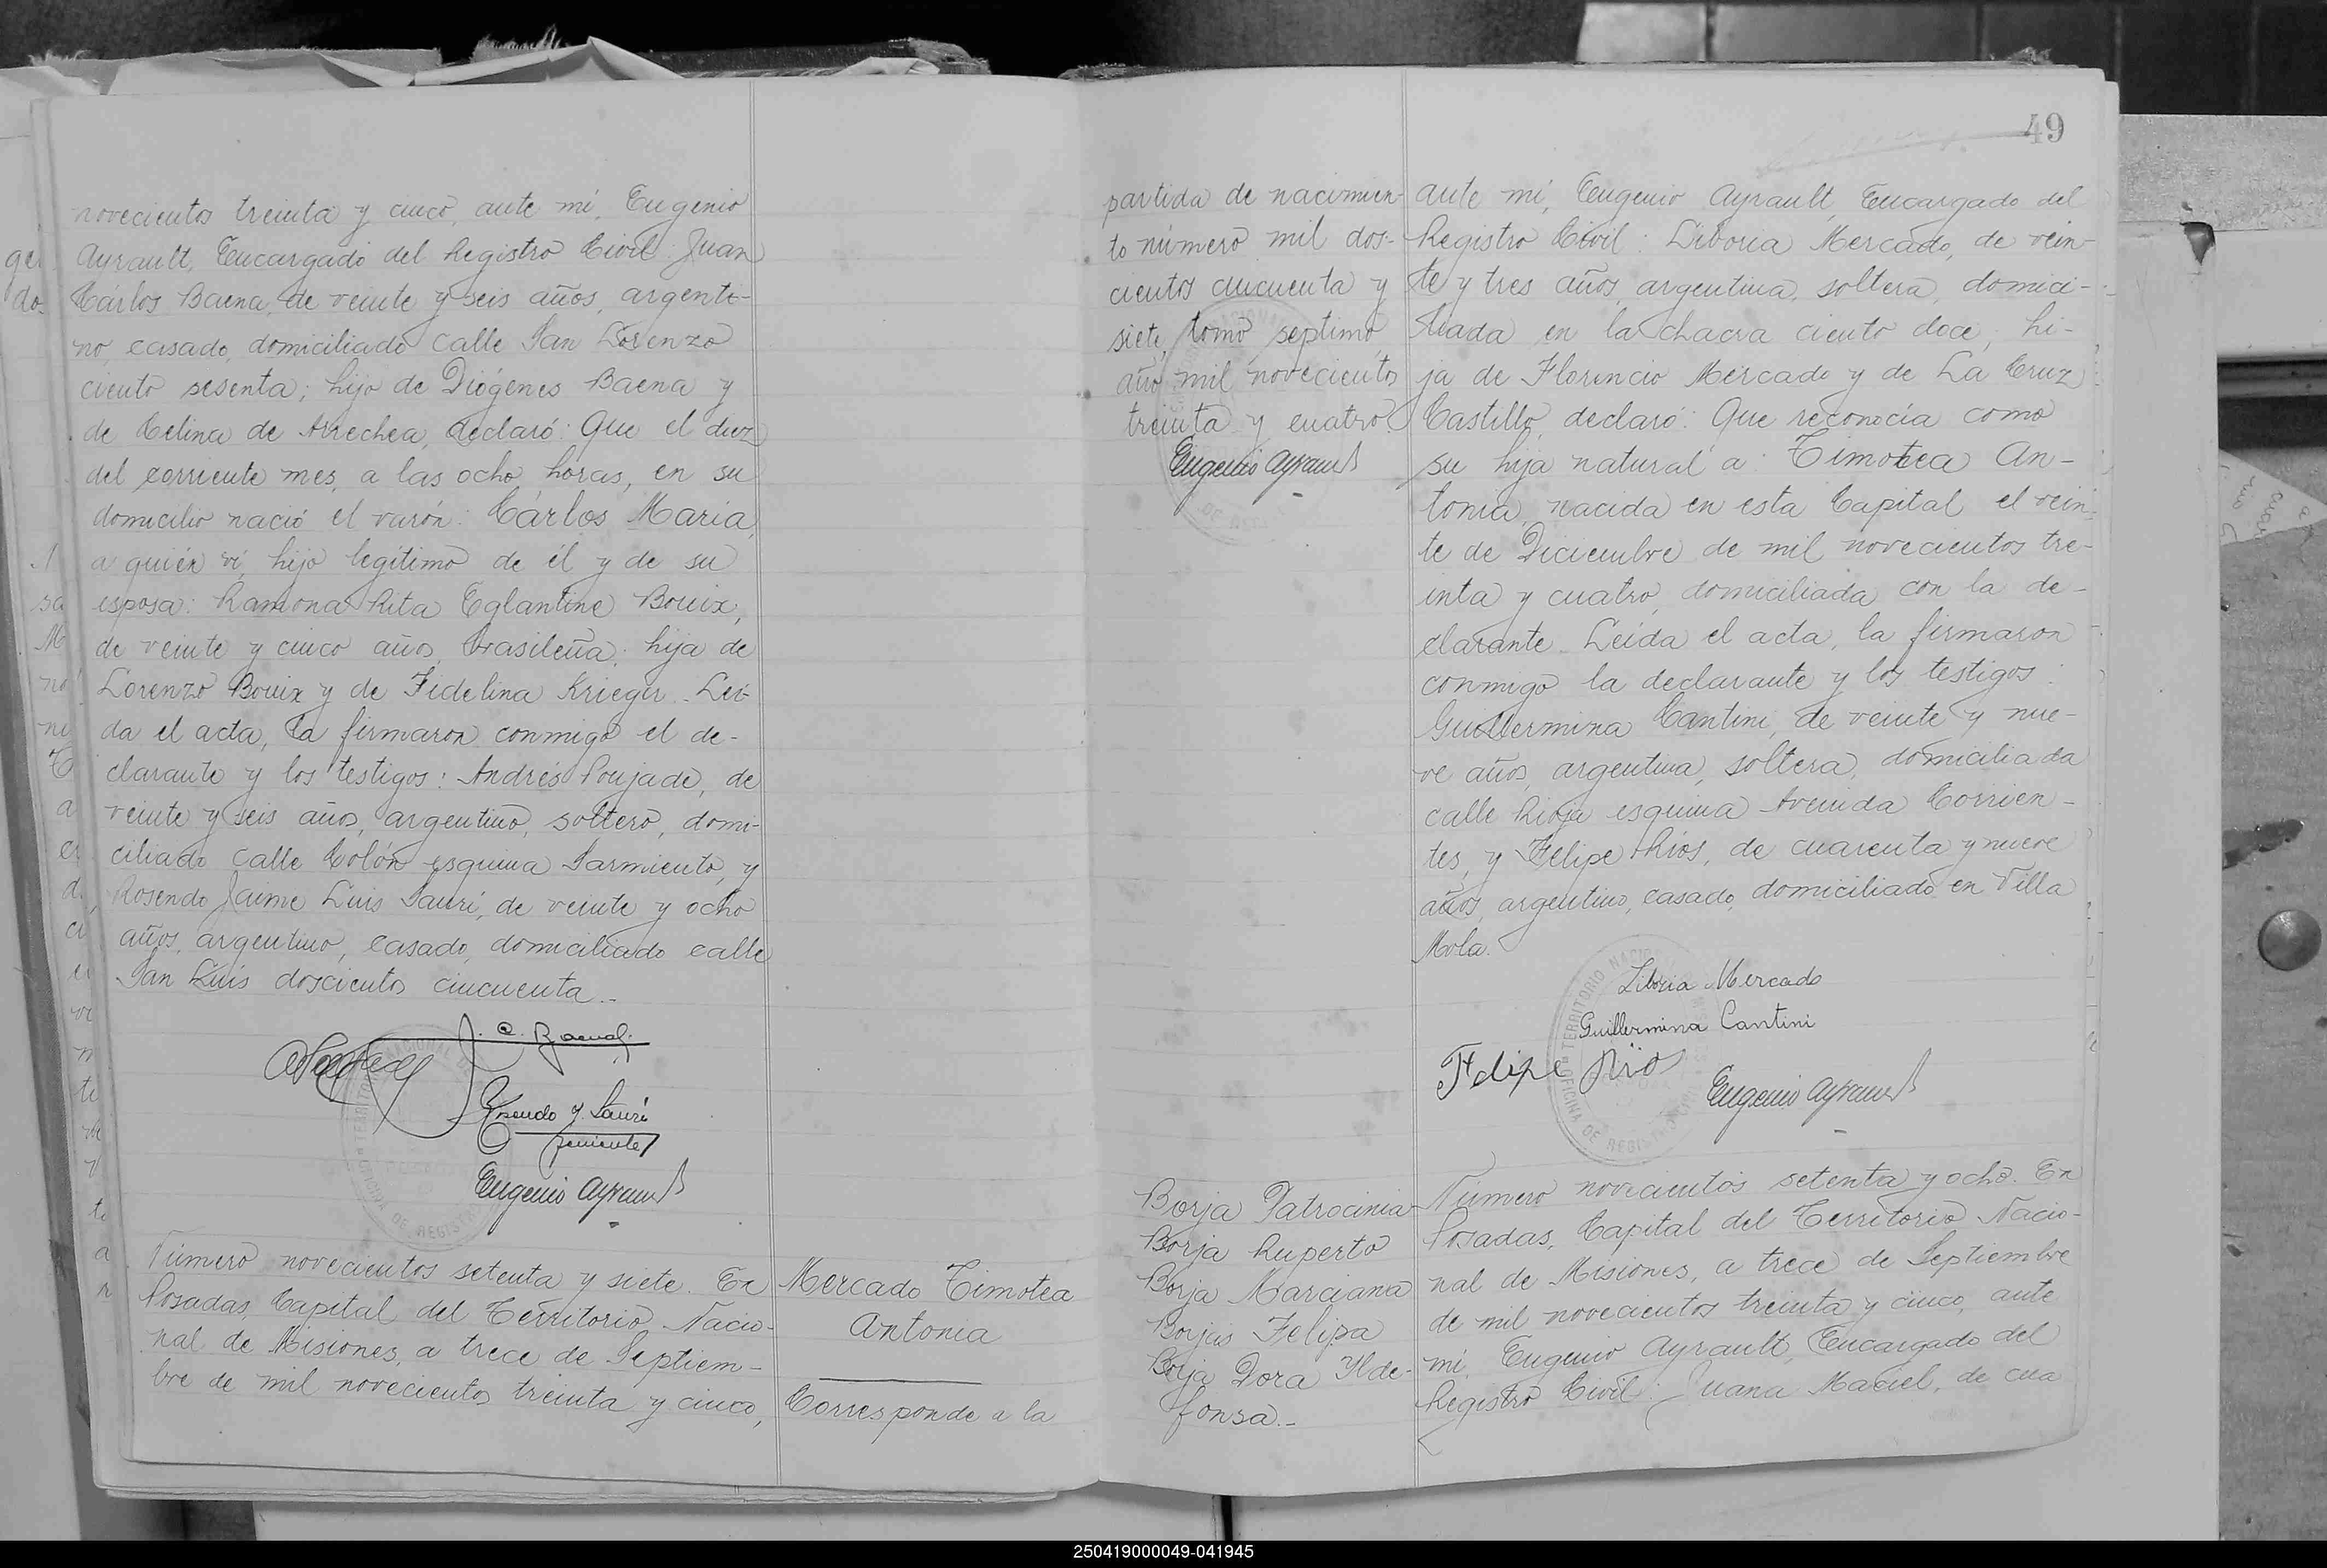 novecientos treinta y cinco, ante mí, Eugenio
Ayrault, Encargado del Registro Civil: Juan
Cárlos Baena, de veinte y seis años, argenti-
no, casado, domiciliado calle San Lorenzo
ciento sesenta; hijo de Diógenes Baena y
de Celina de Arrechea, declaró: Que el diez
del corriente mes, a las ocho horas, en su
domicilio nació el varón: Cárlos María,
a quién ví, hijo legítimo de él y de su
esposa: Ramona Rita Eglantine Bouix,
de veinte y cinco años, brasileña; hija de
Lorenzo Bouix y de Fidelina Krieger. Leí-
da el acta, la firmaron conmigo el de-
clarante y los testigos: Andrés Poujade, de
veinte y seis años, argentino, soltero, domi-
ciliado calle Colón esquina Sarmiento, y
Rosendo Jaime Luis Saurí, de veinte y ocho
años, argentino, casado, domiciliado calle
San Luis doscientos cincuenta.-
J. C. Baena
Rosendo J. Saurí
Eugenio Ayrault
Número novecientos setenta y siete. En
Posadas, Capital del Territorio Nacio-
nal de Misiones, a trece de Septiem-
bre de mil novecientos treinta y cinco,
Mercado Timotea
Antonia
Corresponde a la
49
partida de nacimien-
to número mil dos-
cientos cincuenta y
siete, tomo septimo,
año mil novecientos
treinta y cuatro.
Eugenio Ayrault
ante mí, Eugenio Ayrault, Encargado del
Registro Civil: Liboria Mercado, de vein-
te y tres años, argentina, soltera, domici-
liada en la chacra ciento doce, hi-
ja de Florencio Mercado y de La Cruz
Castillo, declaró: Que reconocía como
su hija natural a: Timotea An-
tonia, nacida en esta Capital el vein-
te de Diciembre de mil novecientos tre-
inta y cuatro, domiciliada con la de-
clarante. Leída el acta, la firmaron
conmigo la declarante y los testigos:
Guillermina Cantini, de veinte y nue-
ve años, argentina, soltera, domiciliada
calle Rioja esquina Avenida Corrien-
tes, y Felipe Ríos, de cuarenta y nueve
años, argentino, casado, domiciliado en Villa
Mola.
Liboria Mercado
Guillermina Cantini
Felipe Ríos
Eugenio Ayrault
Borja Patrocinia
Borja Ruperto
Borja Marciana
Borjas Felipa
Borja Dora Ylde-
fonsa.-
Número novecientos setenta y ocho. En
Posadas, Capital del Territorio Nacio-
nal de Misiones, a trece de Septiembre
de mil novecientos treinta y cinco, ante
mí, Eugenio Ayrault, Encargado del
Registro Civil: Juana Maciel, de cua
250419000049-041945